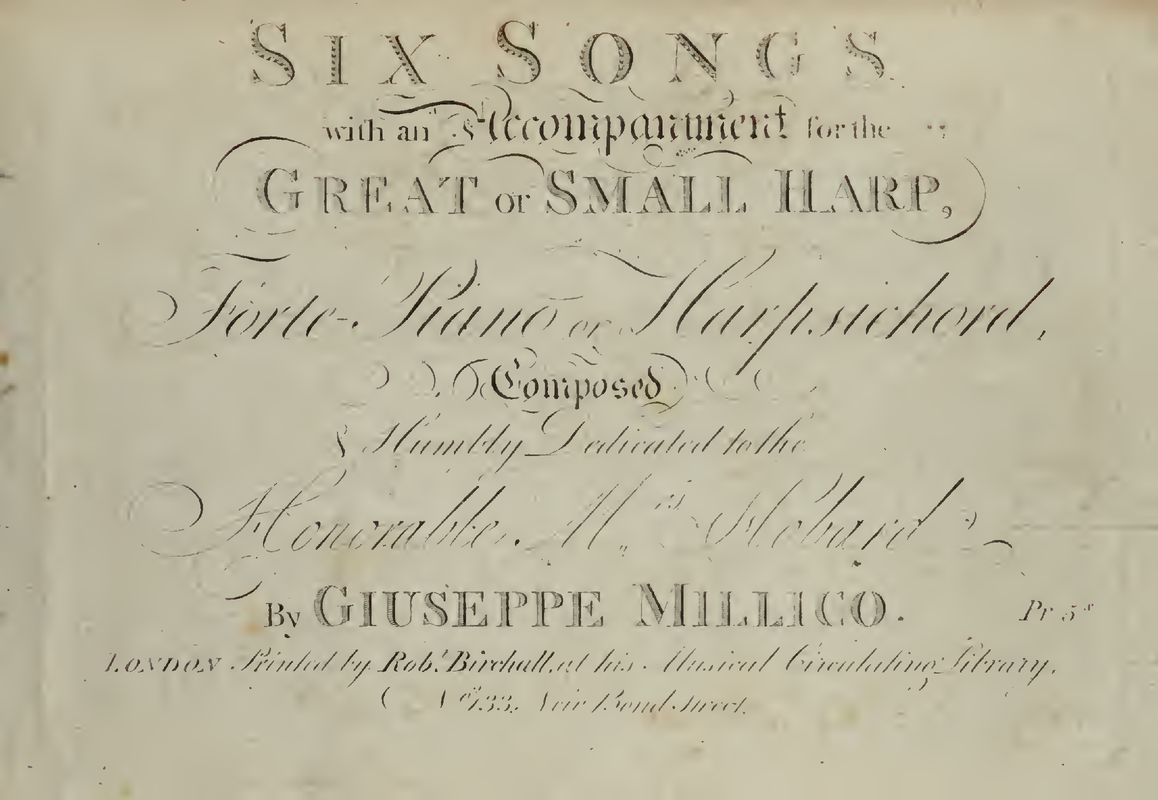 SIX SONGS
with an Accompaniment for the
GREAT or SMALL HARP,
Forte-Piano or Harpsichord,
Composed
& Humbly Dedicated to the
Honorable Mrs Hobard
By GIUSEPPE MILLICO. Pr 5s
LONDON Printed by Robt. Birchall, at his Musical Circulating Library,
No. 133, New Bond Street.